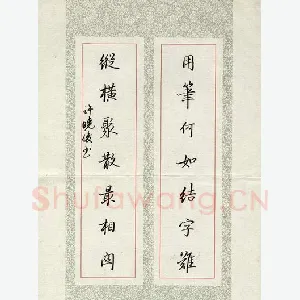 用筆何如結字難
縱橫聚散最相関
许晓俊书
Shufawang.CN